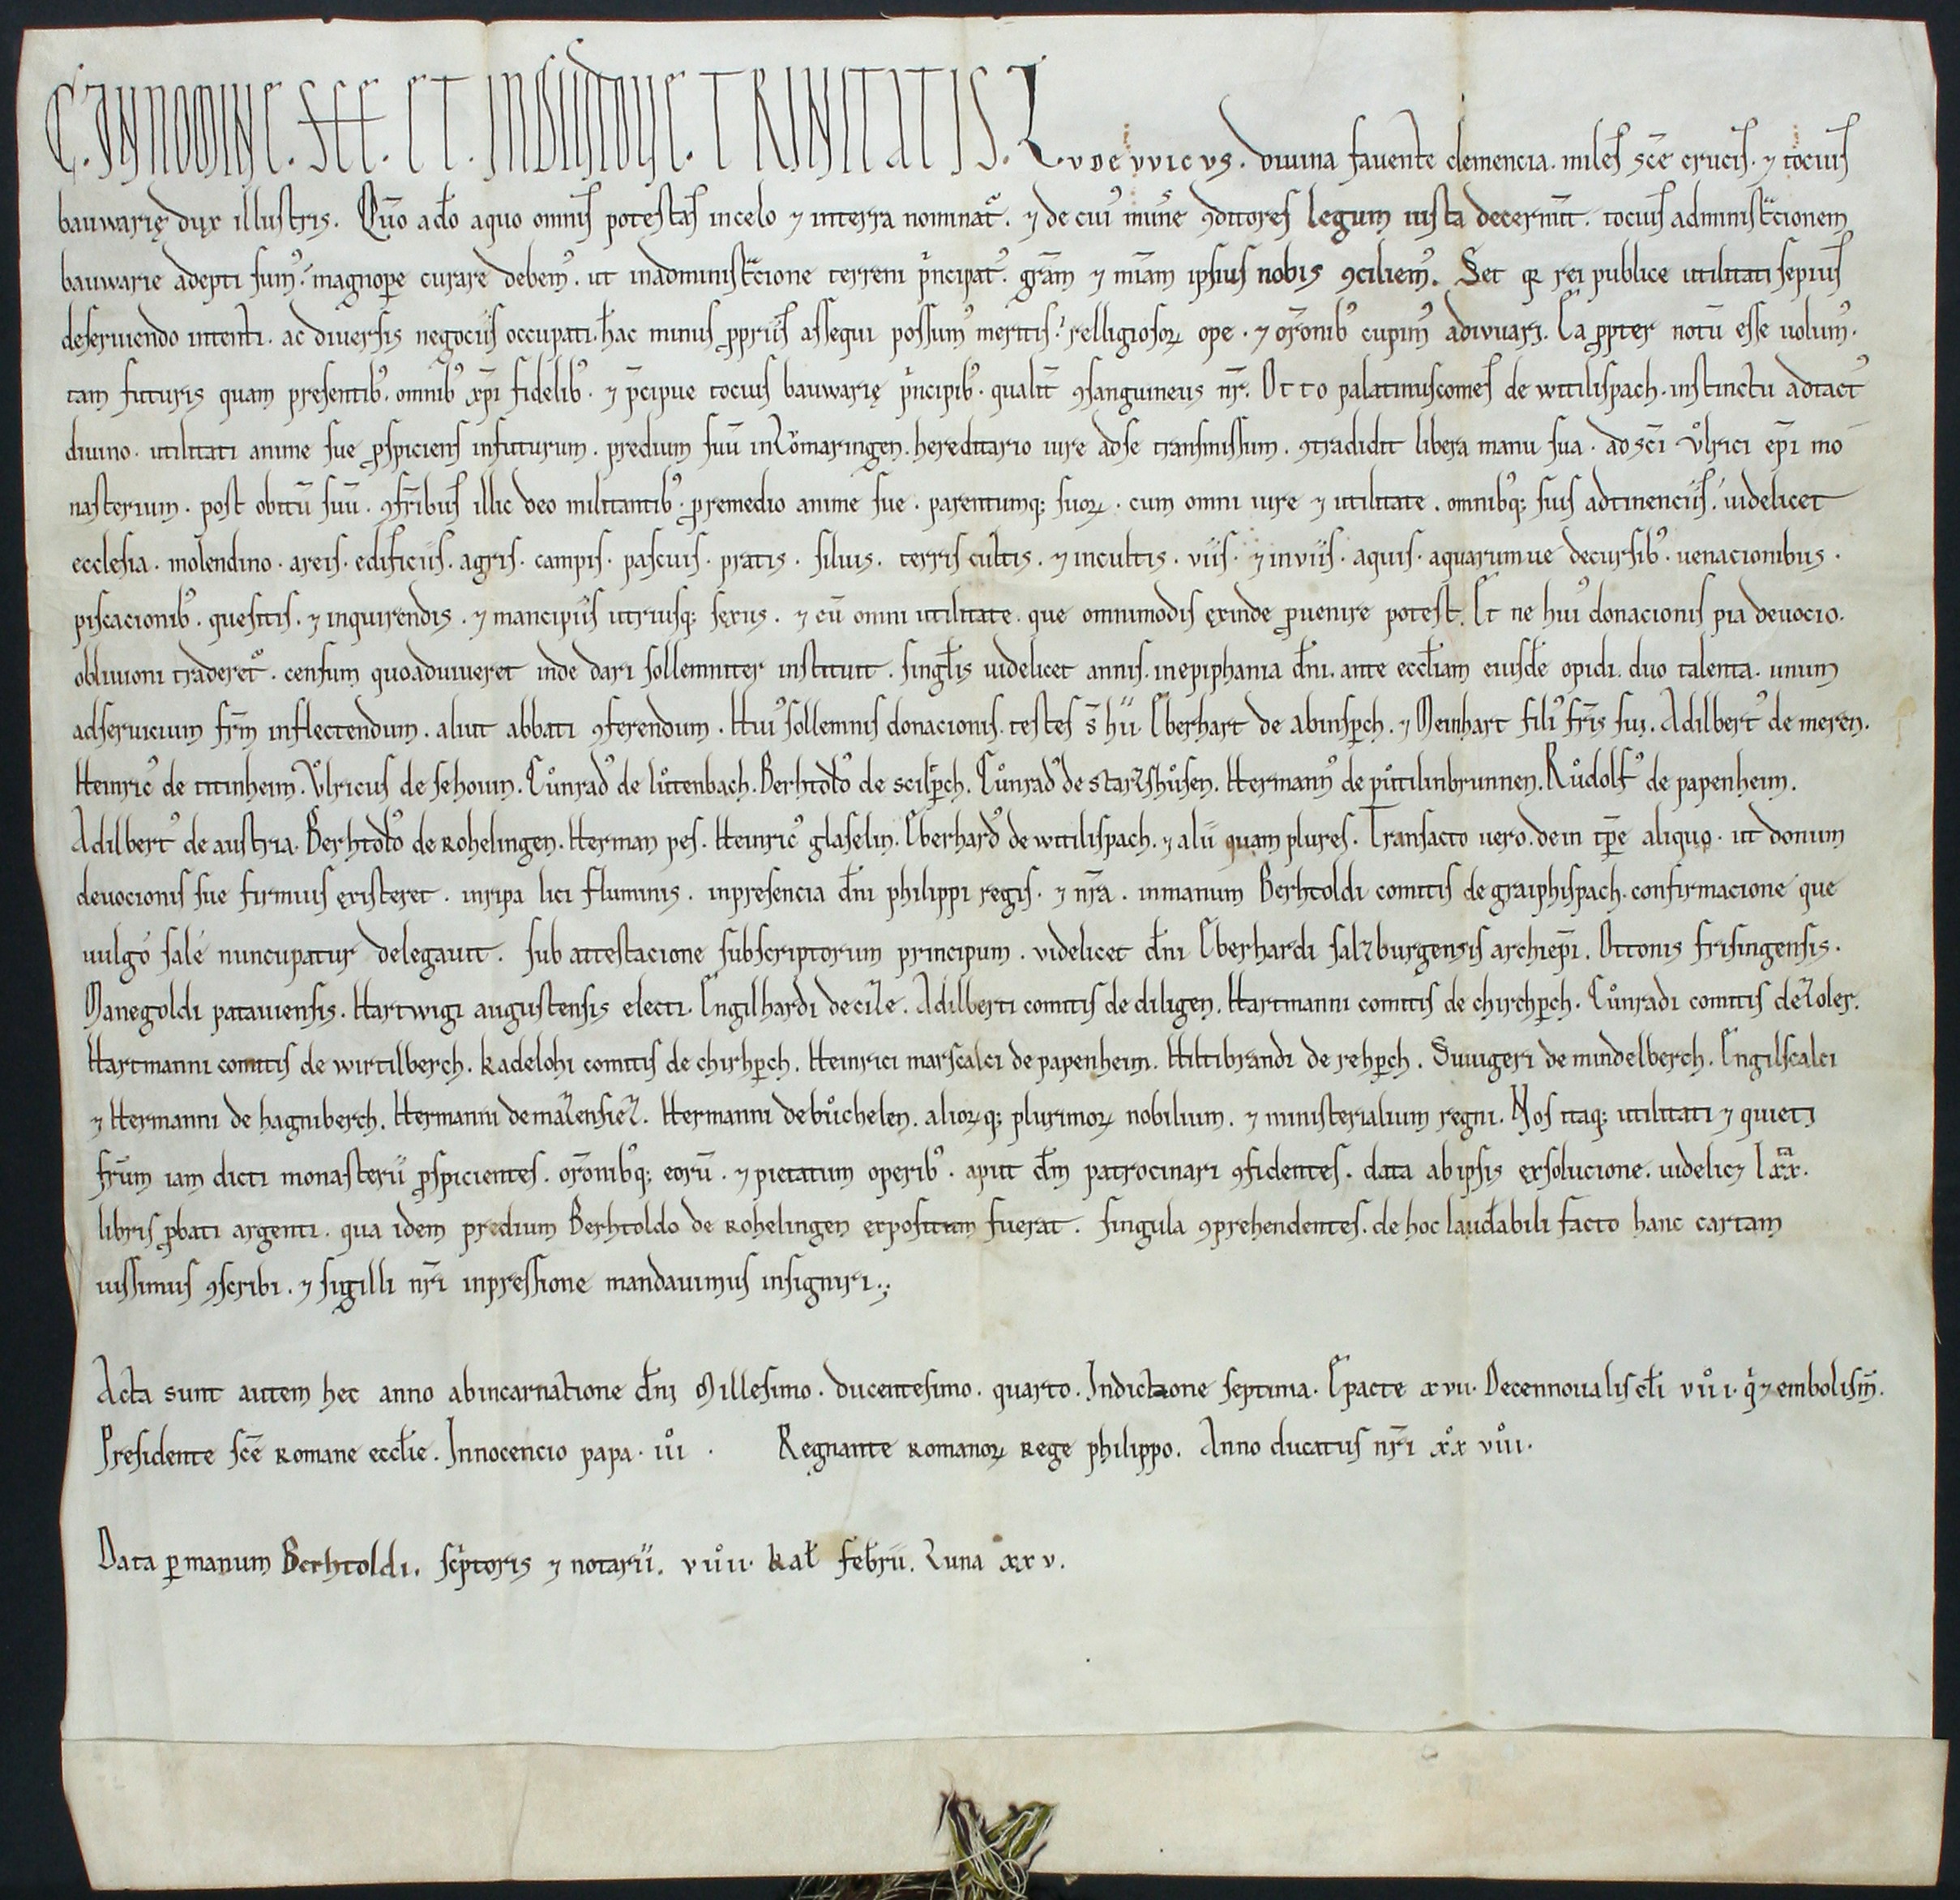 C. IN NOMINE. SCE. ET. INDIVIDUE. TRINITATIS. Lvdevvicvs. diuina fauente clemencia. miles sce̅ crucis. ⁊ tocius
bauwarię dux illustris. Quo̅ adeo aquo omnis potestas incelo ⁊ interra nominat᷑. ⁊ de cui᷒ mune̅ ꝯditores legum iusta decernu̅t. tocius administ̅cionem
bauwarie adepti sum᷒. magnope̅ curare debem᷒. ut inadminist̅cione terreni p̅ncipat᷒. gr̅am ⁊ mi̅am ipsius nobis ꝯciliem᷒. Set qꝛ rei publice utilitati sepius
deseruiendo intenti. ac diuersis negociis occupati. hac minus ꝓpriis assequi possum᷒ meritis. relligiosoꝝ ope. ⁊ or̅onib᷒ cupim᷒ adiuuari. Ea ꝓpter notu̅ esse uolum᷒.
tam futuris quam presentib᷒. omnib᷒ xp̅i fidelib᷒. ⁊ p̅cipue tocius bauwarię p̅ncipib᷒. qualit̅ ꝯsanguineus nr̅. Otto palatinuscomes de witilispach. instinctu adtact᷒
diuino. utilitati anime sue ꝓspiciens infuturum. predium suu̅ inLŏmaringen. hereditario iure adse transmissum. ꝯtradidit libera manu sua. ad sc̅i Vͦlrici ep̅i mo
nasterium. post obitu̅ suu̅. ꝯfr̅ibus illic deo militantib᷒. ꝓremedio anime sue. parentumq; suoꝝ. cum omni iure ⁊ utilitate. omnibq; suis adtinenciis. uidelicet
ecclesia. molendino. areis. edificiis. agris. campis. pascuis. pratis. siluis. terris cultis. ⁊ incultis. viis. ⁊ inviis. aquis. aquarumue decursib᷒. uenacionibus.
piscacionib᷒. quesitis. ⁊ inquirendis. ⁊ mancipiis utriusq; sexus. ⁊ cu̅ omni utilitate. que omnimodis exinde ꝓuenire potest. Et ne hui᷒ donacionis pia deuocio.
obliuioni traderet᷑. censum quoaduiueret inde dari sollemniter instituit. sing̅lis uidelicet annis. inepiphania dn̅i. ante eccl̅iam eiusde̅ opidi. duo talenta. unum
adseruicium fr̅m inflectendum. aliut abbati ꝯferendum. Hui᷒ sollemnis donacionis. testes s̅ hii. Eberhart de abinsp̅ch. ⁊ Meinhart fili᷒ fr̅is sui. Adilbert᷒ de meren.
Heinric᷒ de titinheim. Vͦlricus de sehouin. Cuͦnrad᷒ de luͦtenbach. Berhtold᷒ de scilp̅ch. Cuͦnrad᷒ de starzhuͦsen. Hermann᷒ de puͦtilinbrunnen. Ruͦdolf᷒ de papenheim.
Adilbert᷒ de austria. Berhtold᷒ de Rohelingen. Herman pes. Heinric᷒ glaselin. Eberhard᷒ de witilispach. ⁊ alii quam plures. Transacto uero. dein tp̅e aliquo. ut donum
deuocionis sue firmius existeret. inripa lici fluminis. inpresencia dn̅i philippi regis. ⁊ nr̅a. inmanum Berhtoldi comitis de graiphispach. confirmacione que
uulgo salé nuncupatur delegauit. sub attestacione subscriptorum principum. videlicet dn̅i Eberhardi salzburgensis archiep̅i. Ottonis frisingensis.
Manegoldi patauiensis. Hartwigi augustensis electi. Engilhardi decile. Adilberti comitis de diligen. Hartmanni comitis de chirchp̅ch. Cuͦnradi comitis deZoler.
Hartmanni comitis de wirtilberch. kadelohi comitis de chirhp̅ch. Heinrici marscalci de papenheim. Hiltibrandi de rehp̅ch. Svuigeri de mindelberch. Engilscalci
⁊ Hermanni de hagniberch. Hermanni demazensiez. Hermanni debuͦchelen. alioꝝq; plurimoꝝ nobilium. ⁊ ministerialium regni. Nos itaq; utilitati ⁊ quieti
fr̅um iam dicti monasterii ꝓspicientes. or̅onibq; eoru̅. ⁊ pietatum operib᷒. aput dm̅ patrocinari ꝯfidentes. data abipsis exsolucione. uidelicꝫ lxxͭͣ.
libris ꝓbati argenti. qua idem predium Berhtoldo de Rohelingen expositum fuerat. singula ꝯprehendentes. de hoc laudabili facto hanc cartam
iussimus ꝯscribi. ⁊ sigilli nr̅i inpressione mandauimus insigniri.;
Acta sunt autem hec anno abincarnatione dn̅i Millesimo. ducentesimo. quarto. Indictione septima. Epacte xvii. Decennoualis cl̅i viiͦi. q̅ ⁊ embolism̅.
Presidente sce̅ Romane eccl̅ie. Innocencio papa. iiͦi. Regnante Romanoꝝ Rege philippo. Anno ducatus nr̅i xͦx viͦii.
Data ꝑmanum Berhtoldi. sc̅ptoris ⁊ notarii. viͦii. kal̅ febr̅ii. Luna xxv.